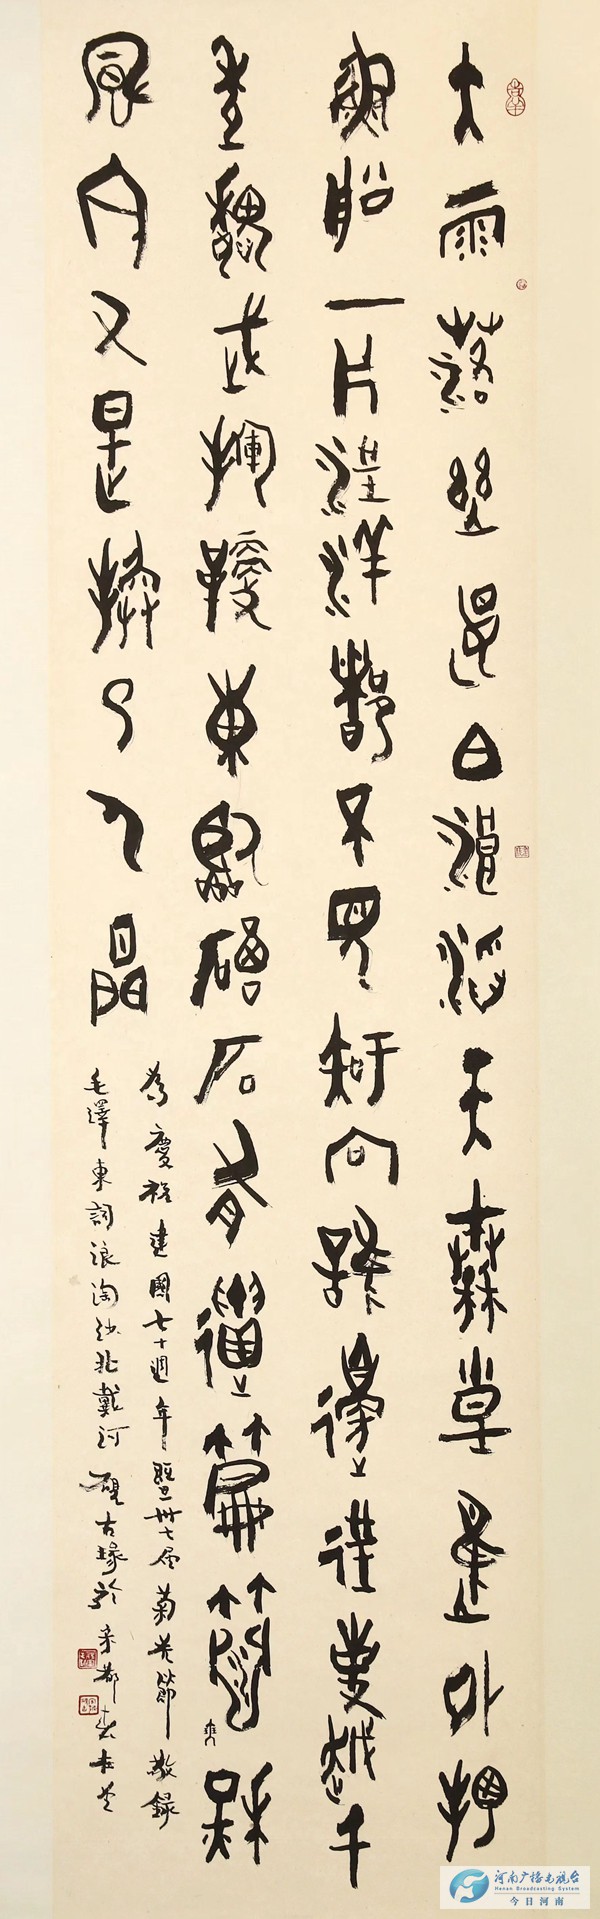 大雨落幽燕白浪滔天秦皇島外打
魚船一片汪洋都不見知向誰邊往事越千
年魏武揮鞭東臨碣石有遺篇蕭瑟秋
風今又是換了人間
為慶祝建國七十週年暨卅七屆菊花節敬錄
毛澤東詞浪淘沙北戴河 古緣於宋都
河南广播电视台
Henan Broadcasting System
今日河南